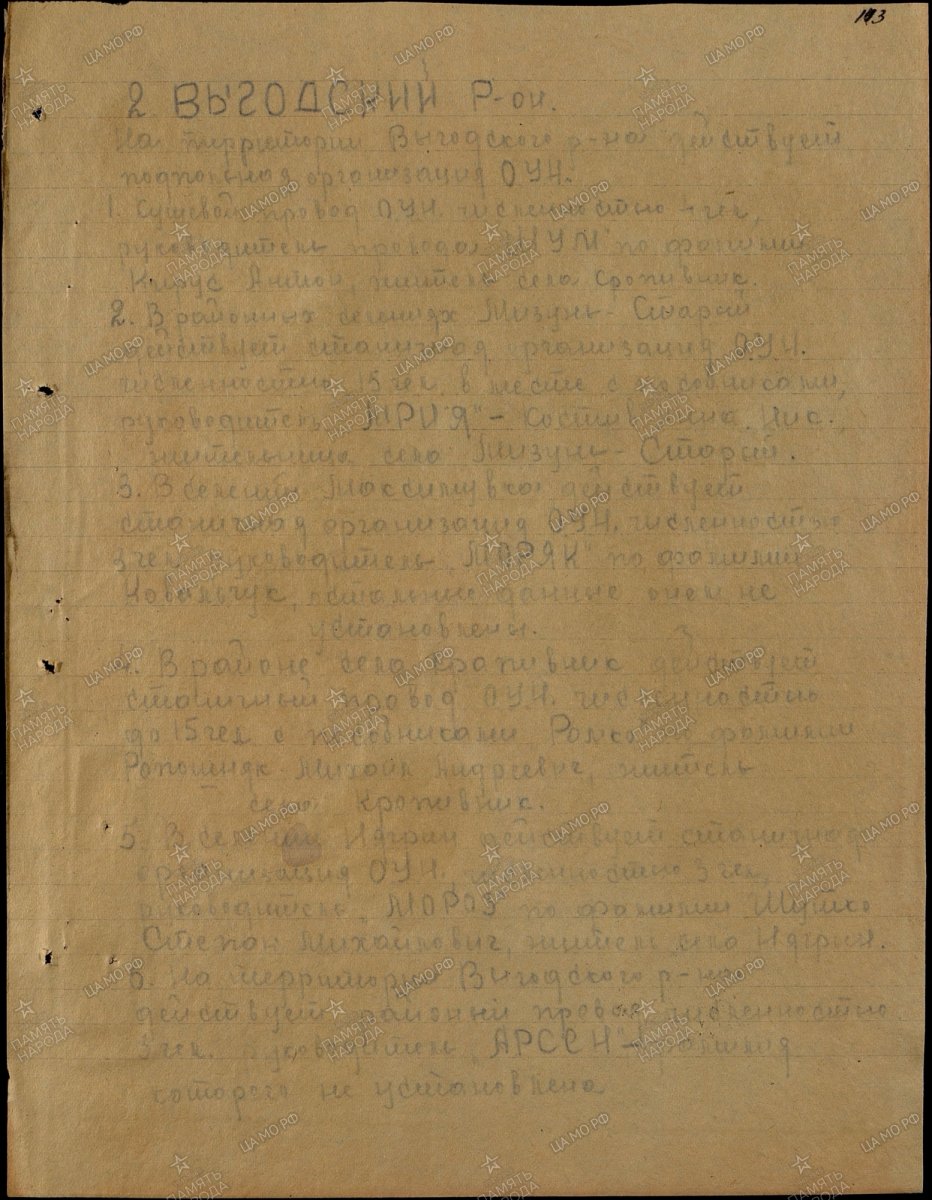 113
2 ВЫГОДСКИЙ Р-он.
На территории Выгодского р-на действует
подпольная организация ОУН.
1. Кущевой провод ОУН. численностью чел,
руководитель провода "ШУМ" по фамилии
Антон, житель села Кропивник.
2. В районных селениях Мизунь-Старый
действует станичная организация ОУН.
численностью 15 чел. вместе с пособниками,
руководитель "МРИЯ" –
жительница села Мизунь-Старый.
3. В селении Максимувка действует
станичная организация ОУН. численностью
3 чел. руководитель "МОРЯК" по фамилии
Ковальчук, остальные данные о нем не
установлены.
4. В районе села Кропивник действует
станичный провод ОУН. численностью
до 15 чел с пособниками по фамилии
Михаил Андреевич, житель
села Кропивник.
5. В селении действует станичная
организация ОУН. численностью 3 чел,
руководитель "МОРОЗ" по фамилии Шутко
Степан Михайлович, житель села
6. На территории Выгодского р-на
действует районный провод численностью
3 чел. руководитель "АРСЕН" – фамилия
которого не установлена
ПАМЯТЬ НАРОДА
ЦАМО.РФ